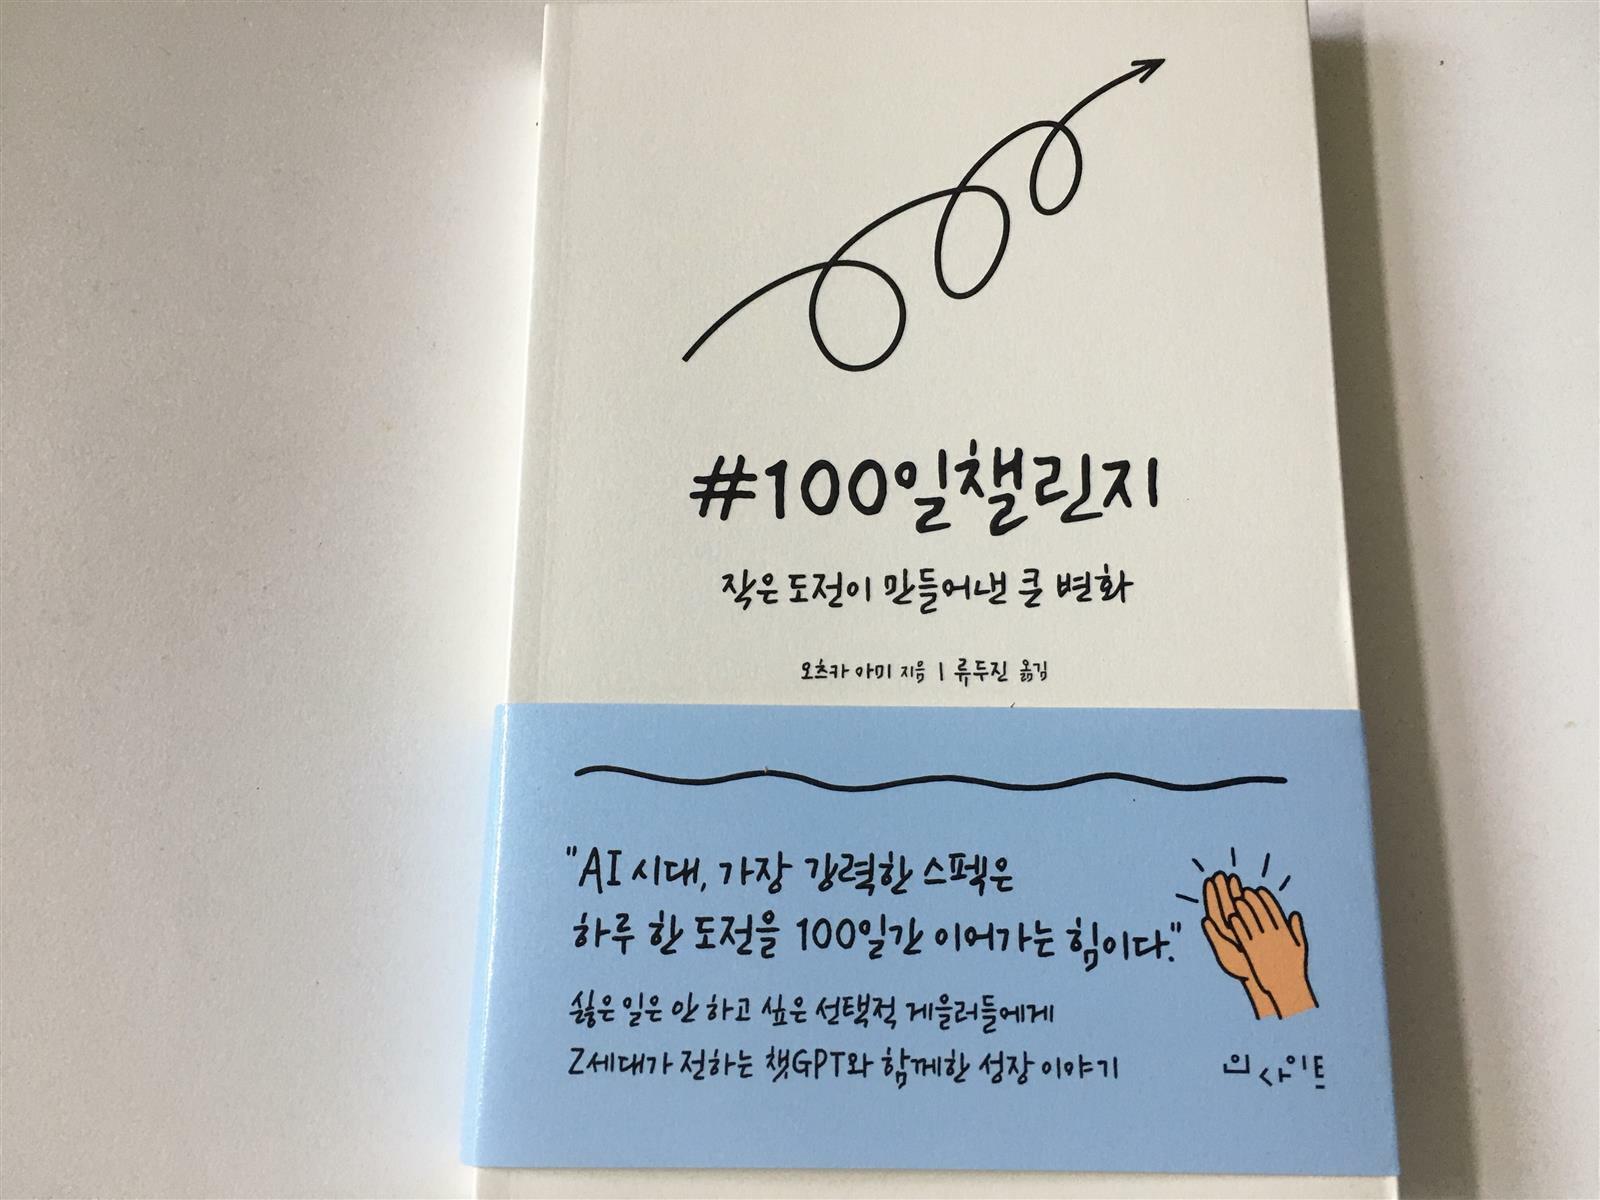 #100일챌린지
작은 도전이 만들어낸 큰 변화
오츠카 아미 지음 | 류두진 옮김
"AI 시대, 가장 강력한 스펙은
하루 한 도전을 100일간 이어가는 힘이다."
싫은 일은 안 하고 싶은 선택적 게을러들에게
Z세대가 전하는 챗GPT와 함께한 성장 이야기
인사이트